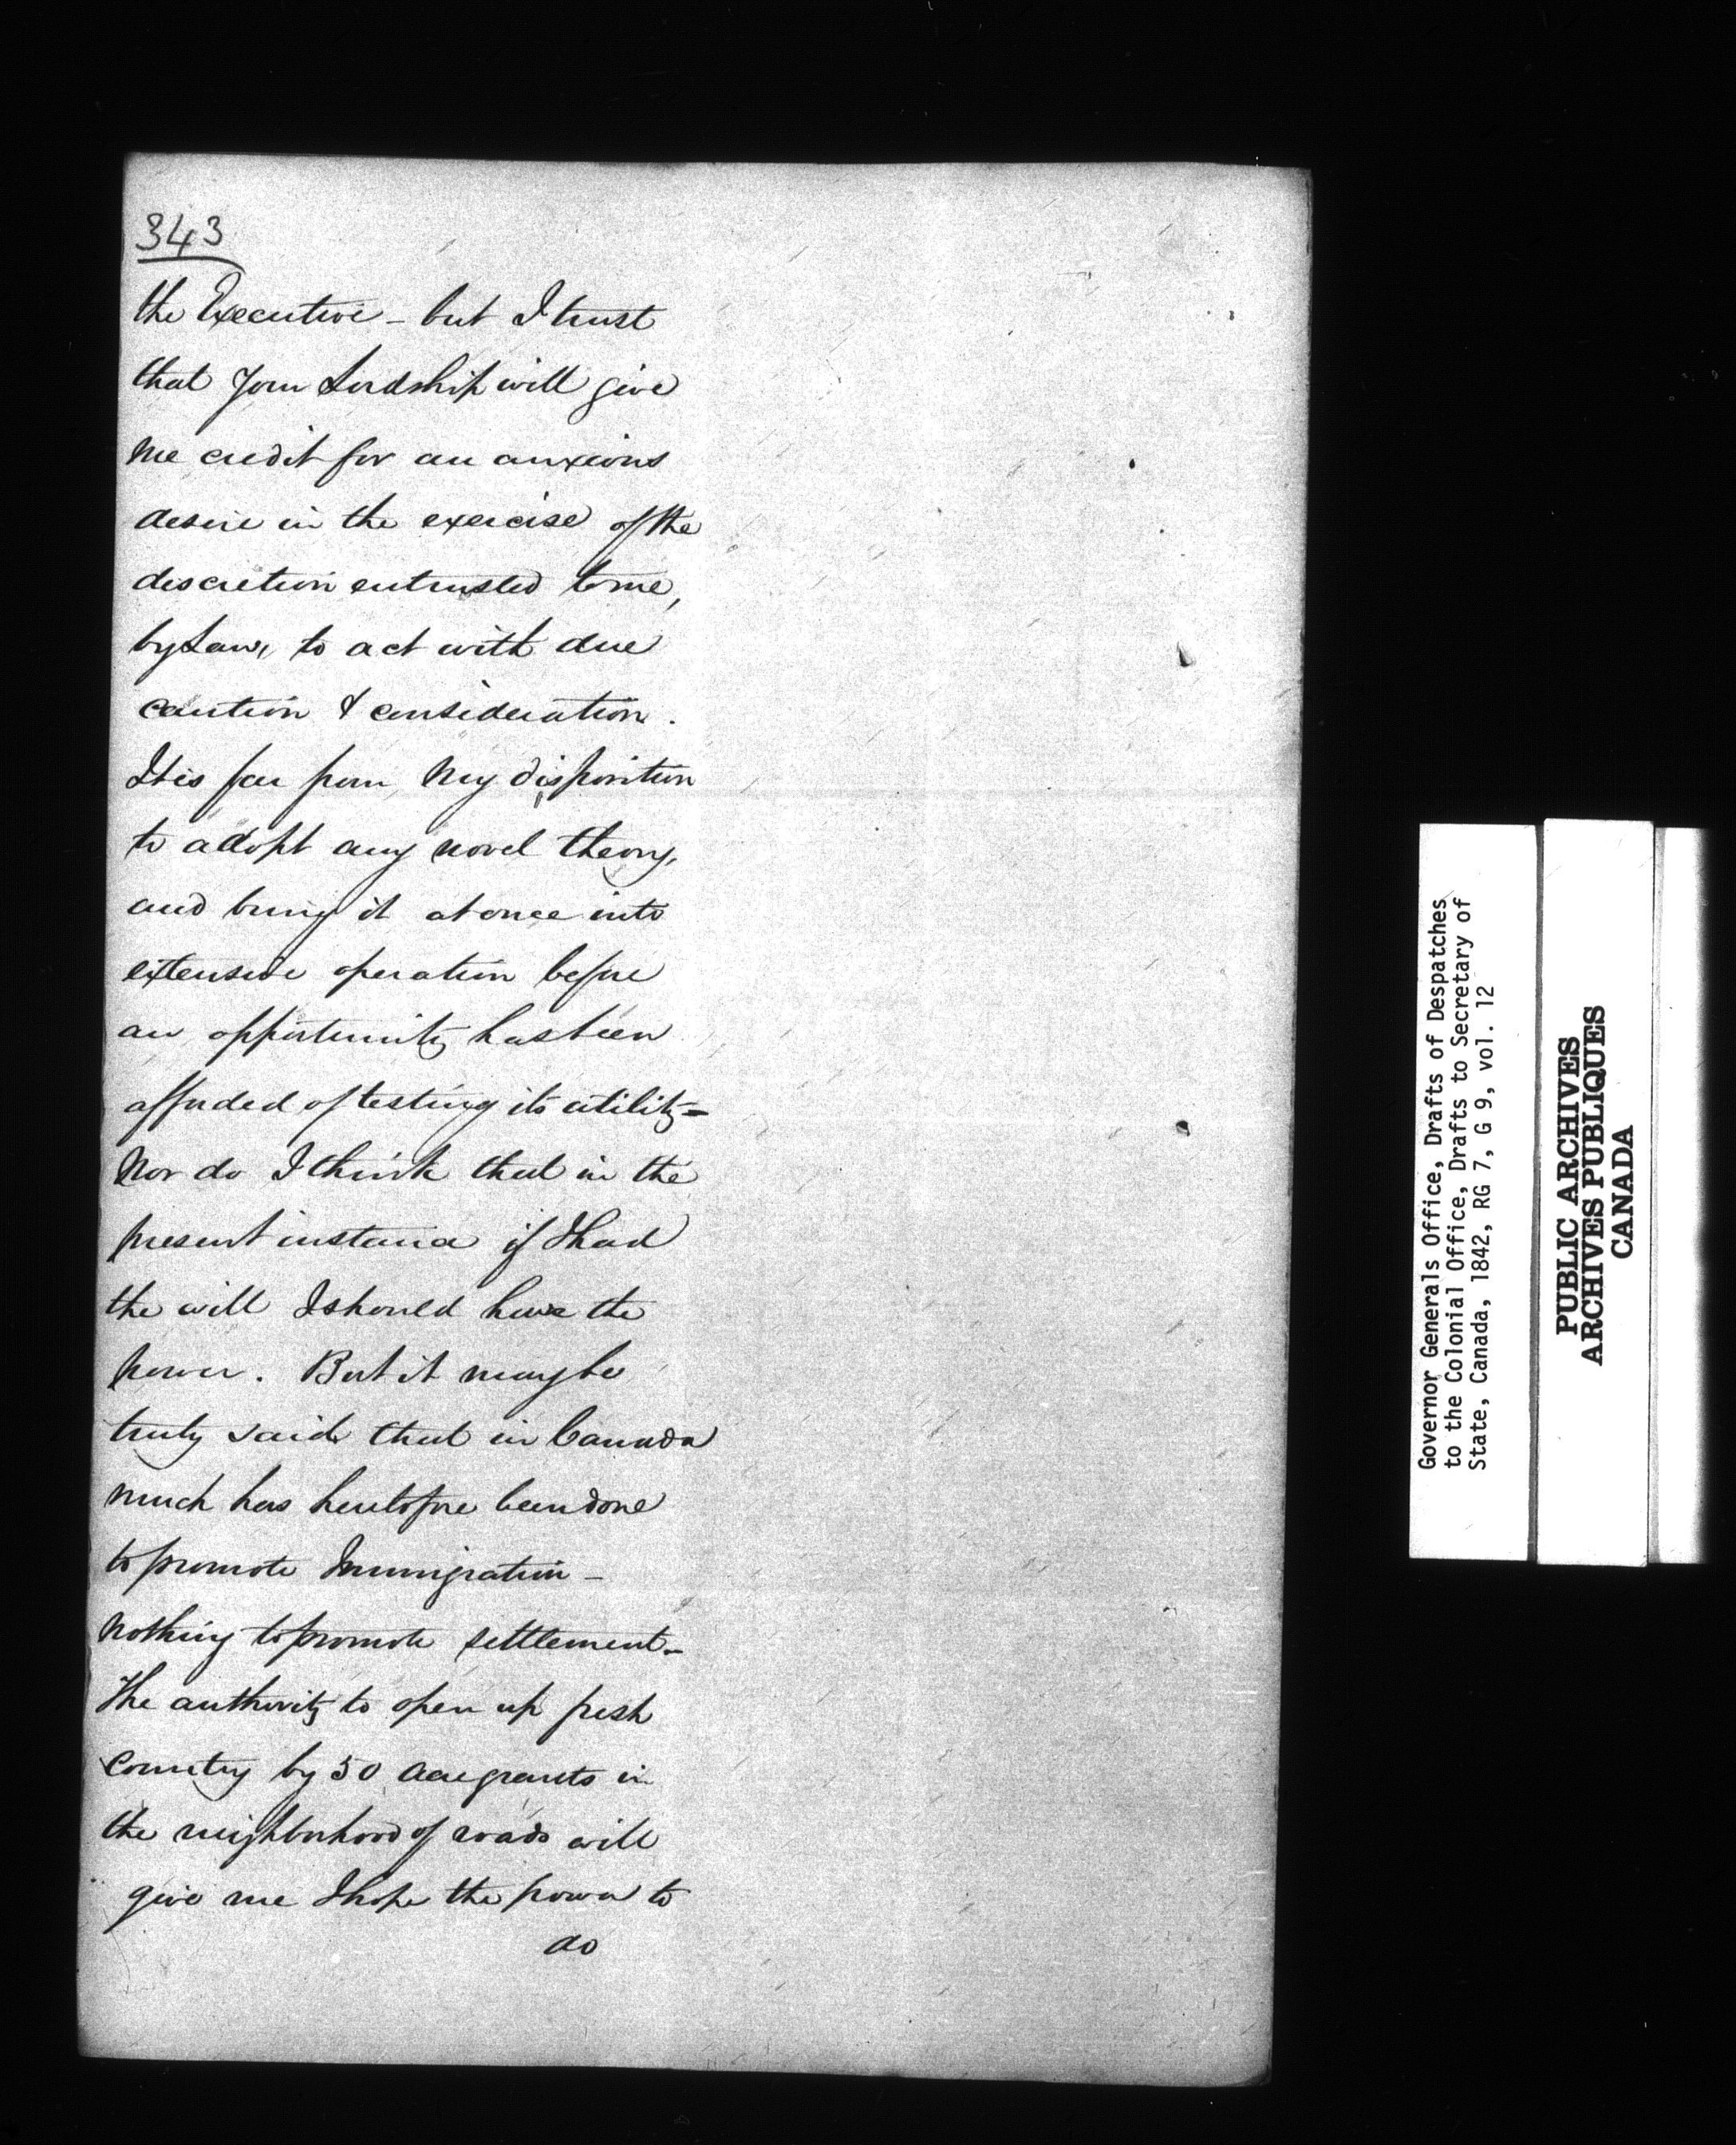 343
the Executive – but I trust
that Your Lordship will give
me credit for an anxious
desire in the exercise of the
discretion entrusted to me,
by Law, to act with due
caution & consideration.
It is far from my disposition
to adopt any novel theory,
and bring it at once into
extensive operation before
an opportunity has been
afforded of testing its utility –
Nor do I think that in the
present instance if I had
the will I should have the
power. But it may be
truly said that in Canada
much has heretofore been done
to promote Immigration –
nothing to promote settlement –
The authority to open up fresh
Country by 50 acre grants in
the neighborhood of roads will
give me I hope the power to
do
Governor Generals Office, Drafts of Despatches
to the Colonial Office, Drafts to Secretary of
State, Canada, 1842, RG 7, G 9, vol. 12
PUBLIC ARCHIVES
ARCHIVES PUBLIQUES
CANADA